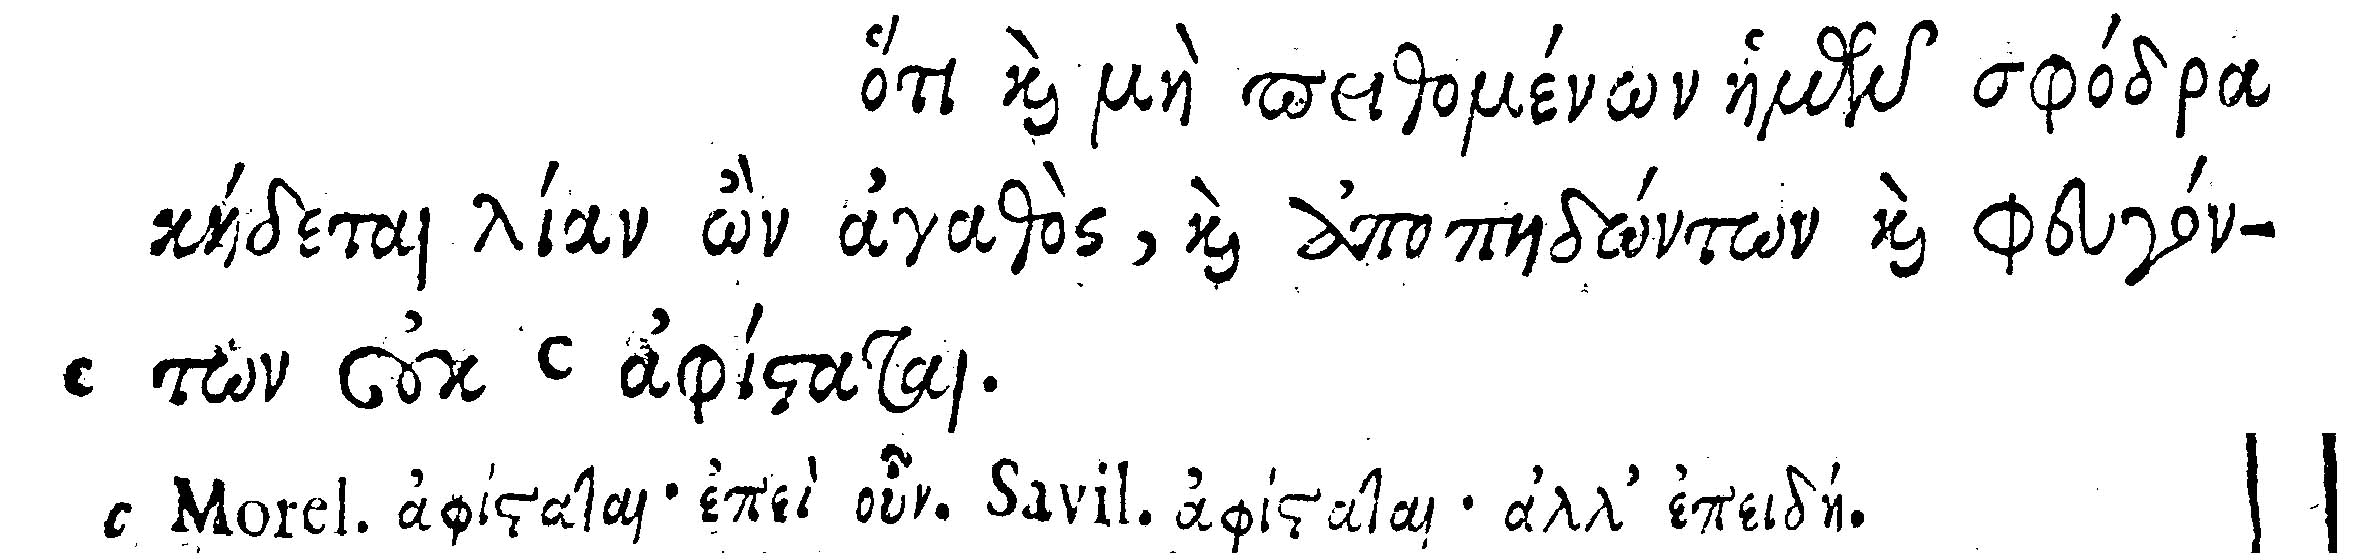 ὅτι καὶ μὴ πειθομένων ἡμῶν σφόδρα
κήδεται λίαν ὢν ἀγαθὸς, καὶ ἀποπηδώντων καὶ φευγόν-
c των οὐκ c ἀφίσταται.
c Morel. ἀφίσταται· ἐπεὶ οὖν. Savil. ἀφίσταται· ἀλλ’ ἐπειδή.